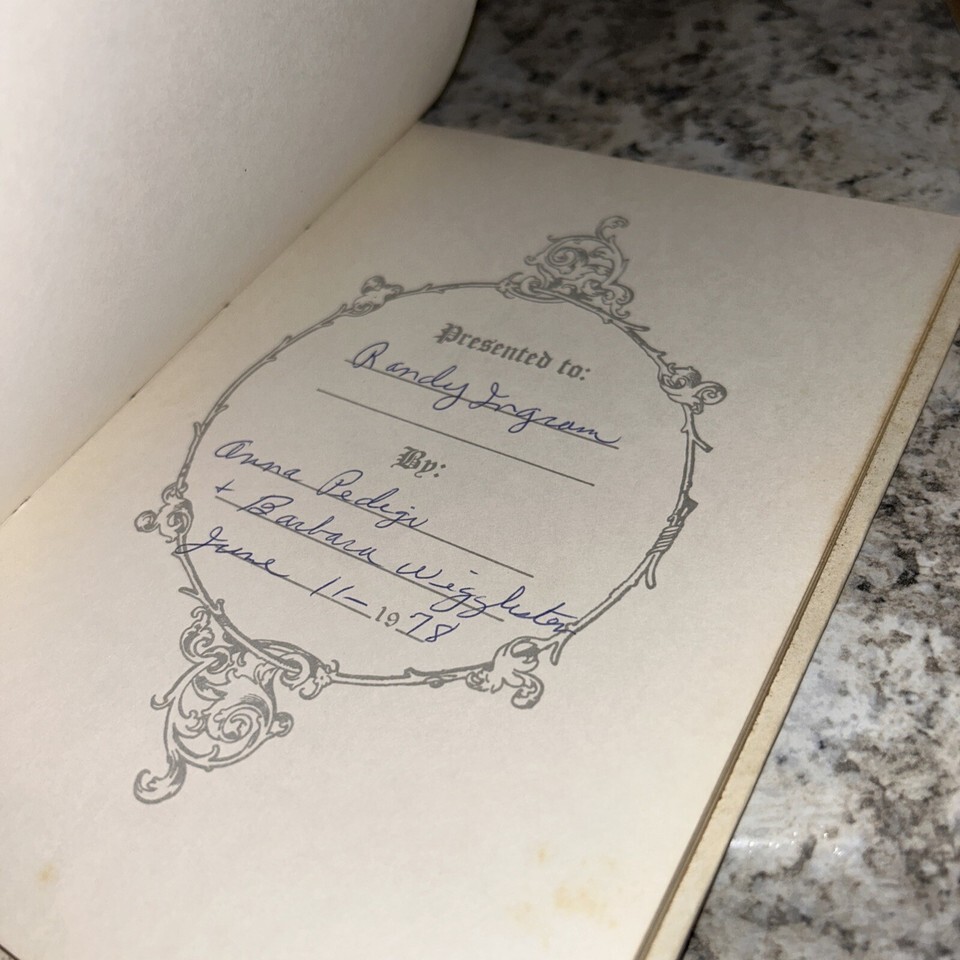 Presented to:
Randy Ingram
By:
Anna Pedigi
+ Barbara Wigglestem
June 11- 1978